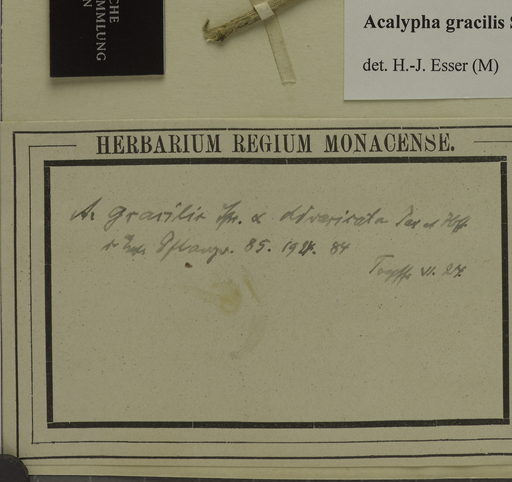 CHE
MMLUNG
EN
Acalypha gracilis S
det. H.-J. Esser (M)
HERBARIUM REGIUM MONACENSE.
A. gracilis Spr. α divaricata Pax et Hoff
Pflanzr. 85. 1924. 84
VI. 27.